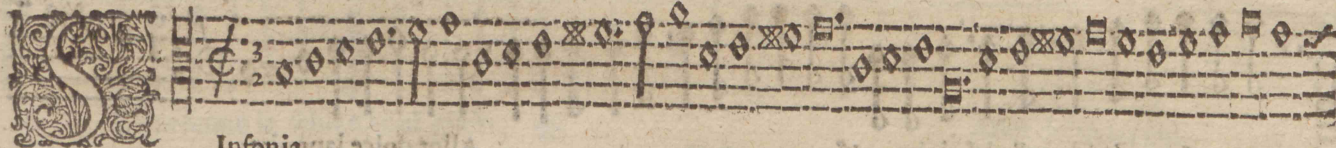 S
3
2
Infonia